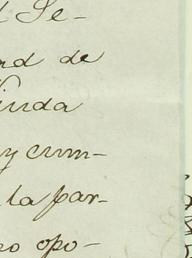 l Se-
nd de
inda
y cum-
la par-
no opo-